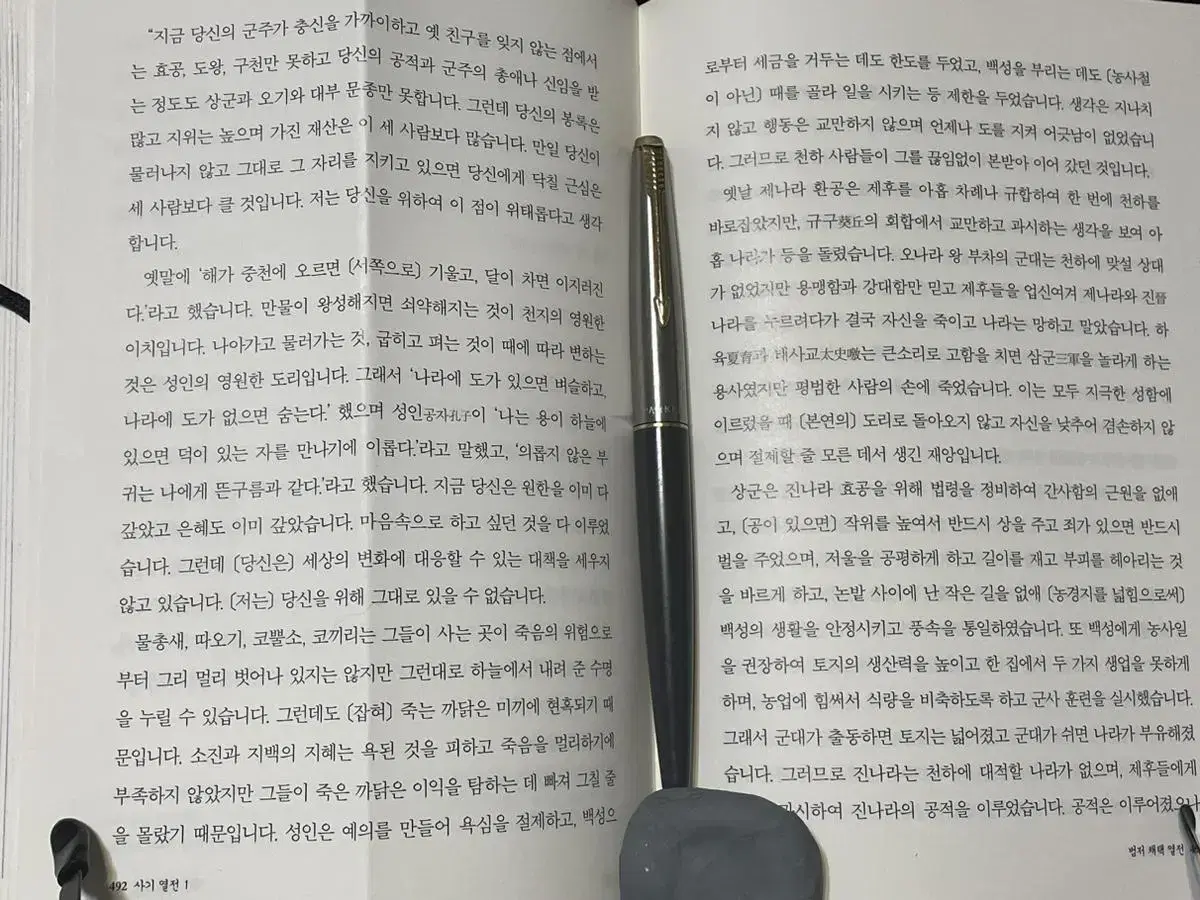 “지금 당신의 군주가 충신을 가까이하고 옛 친구를 잊지 않는 점에서
는 효공, 도왕, 구천만 못하고 당신의 공적과 군주의 총애나 신임을 받
는 정도도 상군과 오기와 대부 문종만 못합니다. 그런데 당신의 봉록은
많고 지위는 높으며 가진 재산은 이 세 사람보다 많습니다. 만일 당신이
물러나지 않고 그대로 그 자리를 지키고 있으면 당신에게 닥칠 근심은
세 사람보다 클 것입니다. 저는 당신을 위하여 이 점이 위태롭다고 생각
합니다.
옛말에 ‘해가 중천에 오르면 〔서쪽으로〕 기울고, 달이 차면 이지러진
다.’라고 했습니다. 만물이 왕성해지면 쇠약해지는 것이 천지의 영원한
이치입니다. 나아가고 물러가는 것, 굽히고 펴는 것이 때에 따라 변하는
것은 성인의 영원한 도리입니다. 그래서 ‘나라에 도가 있으면 벼슬하고,
나라에 도가 없으면 숨는다.’ 했으며 성인공자孔子이 ‘나는 용이 하늘에
있으면 덕이 있는 자를 만나기에 이롭다.’라고 말했고, ‘의롭지 않은 부
귀는 나에게 뜬구름과 같다.’라고 했습니다. 지금 당신은 원한을 이미 다
갚았고 은혜도 이미 갚았습니다. 마음속으로 하고 싶던 것을 다 이루었
습니다. 그런데 〔당신은〕 세상의 변화에 대응할 수 있는 대책을 세우지
않고 있습니다. 〔저는〕 당신을 위해 그대로 있을 수 없습니다.
물총새, 따오기, 코뿔소, 코끼리는 그들이 사는 곳이 죽음의 위험으로
부터 그리 멀리 벗어나 있지는 않지만 그런대로 하늘에서 내려 준 수명
을 누릴 수 있습니다. 그런데도 〔잡혀〕 죽는 까닭은 미끼에 현혹되기 때
문입니다. 소진과 지백의 지혜는 욕된 것을 피하고 죽음을 멀리하기에
부족하지 않았지만 그들이 죽은 까닭은 이익을 탐하는 데 빠져 그칠 줄
을 몰랐기 때문입니다. 성인은 예의를 만들어 욕심을 절제하고, 백성으
492 사기 열전 1
로부터 세금을 거두는 데도 한도를 두었고, 백성을 부리는 데도 〔농사철
이 아닌〕 때를 골라 일을 시키는 등 제한을 두었습니다. 생각은 지나치
지 않고 행동은 교만하지 않으며 언제나 도를 지켜 어긋남이 없었습니
다. 그러므로 천하 사람들이 그를 끊임없이 본받아 이어 갔던 것입니다.
옛날 제나라 환공은 제후를 아홉 차례나 규합하여 한 번에 천하를
바로잡았지만, 규구葵丘의 회합에서 교만하고 과시하는 생각을 보여 아
홉 나라가 등을 돌렸습니다. 오나라 왕 부차의 군대는 천하에 맞설 상대
가 없었지만 용맹함과 강대함만 믿고 제후들을 업신여겨 제나라와 진晉
나라를 누르려다가 결국 자신을 죽이고 나라는 망하고 말았습니다. 하
육夏育과 태사교太史噭는 큰소리로 고함을 치면 삼군三軍을 놀라게 하는
용사였지만 평범한 사람의 손에 죽었습니다. 이는 모두 지극한 성함에
이르렀을 때 〔본연의〕 도리로 돌아오지 않고 자신을 낮추어 겸손하지 않
으며 절제할 줄 모른 데서 생긴 재앙입니다.
상군은 진나라 효공을 위해 법령을 정비하여 간사함의 근원을 없애
고, 〔공이 있으면〕 작위를 높여서 반드시 상을 주고 죄가 있으면 반드시
벌을 주었으며, 저울을 공평하게 하고 길이를 재고 부피를 헤아리는 것
을 바르게 하고, 논밭 사이에 난 작은 길을 없애 〔농경지를 넓힘으로써〕
백성의 생활을 안정시키고 풍속을 통일하였습니다. 또 백성에게 농사일
을 권장하여 토지의 생산력을 높이고 한 집에서 두 가지 생업을 못하게
하며, 농업에 힘써서 식량을 비축하도록 하고 군사 훈련을 실시했습니다.
그래서 군대가 출동하면 토지는 넓어졌고 군대가 쉬면 나라가 부유해졌
습니다. 그러므로 진나라는 천하에 대적할 나라가 없으며, 제후들에게
과시하여 진나라의 공적을 이루었습니다. 공적은 이루어졌으나
범저 채택 열전